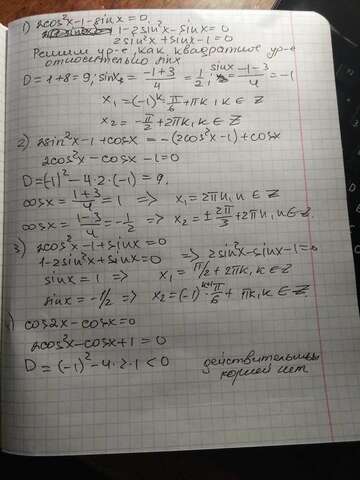 1) 2cos²x-1-sinx=0
1-2sin²x-sinx=0
2sin²x+sinx-1=0
Решим ур-е, как квадратное ур-е
относительно sinx
D=1+8=9; sinx₁ = (-1+3)/4 = 1/2; sinx = (-1-3)/4 = -1
x₁=(-1)^k · π/6 + πk, k ∈ Z
x₂ = -π/2 + 2πk, k ∈ Z
2) 2sin²x-1+cosx = -(2cos²x-1)+cosx
2cos²x-cosx-1=0
D=(-1)²-4·2·(-1)=9.
cosx = (1+3)/4 = 1 => x₁=2πn, n ∈ Z
cosx = (1-3)/4 = -1/2 => x₂ = ± 2π/3 + 2πn, n ∈ Z.
3) 2cos²x-1+sinx=0
1-2sin²x+sinx=0 => 2sin²x-sinx-1=0
sinx=1 => x₁ = π/2 + 2πk, k ∈ Z
sinx=-1/2 => x₂=(-1)^(k+1) · π/6 + πk, k ∈ Z.
4) cos2x-cosx=0
2cos²x-cosx+1=0
D=(-1)²-4·2·1<0
действительных
корней нет